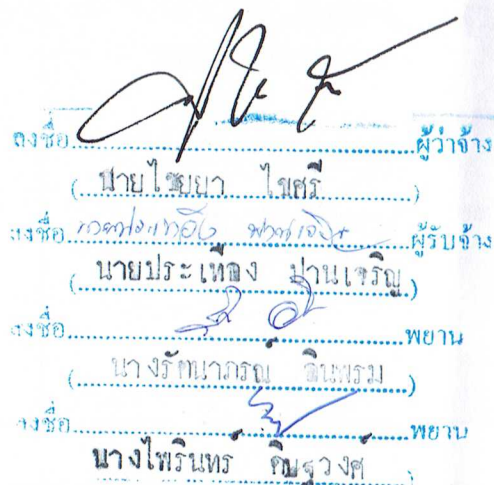 ลงชื่อ....................ผู้ว่าจ้าง
(นายไชยยา ไขศรี)
ลงชื่อ....................ผู้รับจ้าง
(นายประเทือง ปานเจริญ)
ลงชื่อ....................พยาน
(นางรัตนาภรณ์)
ลงชื่อ....................พยาน
นางไพรินทร์